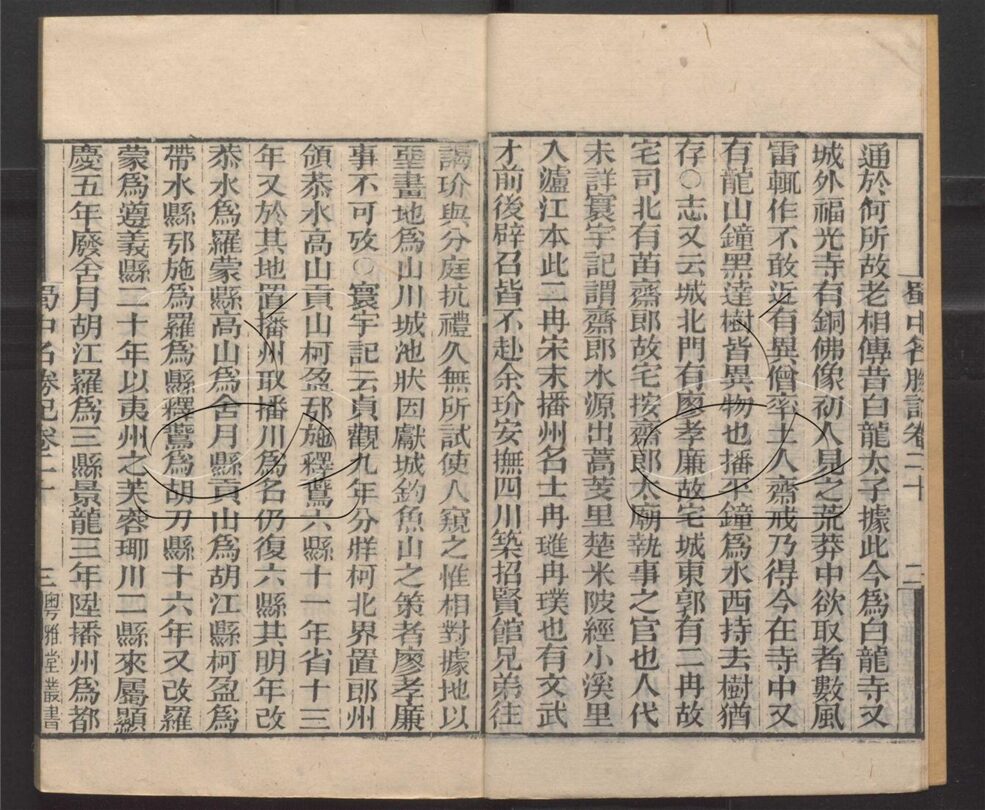 蜀中名勝記卷二十 二
通於何所故老相傳昔白龍太子據此今爲白龍寺又
城外福光寺有銅佛像初人易之荒莽中欲取者數風
雷輒作不敢近有異僧率土人齋戒乃得今在寺中又
有龍山鐘黑達樹皆異物也播平鐘爲水西持去樹猶
存○志又云城北門有廖孝廉故宅城東郭有二冉故
宅司北有苗齋郎故宅按齋郎太廟執事之官也人代
未詳寰宇記謂齋郎水源出蒿芰里楚米陂經小溪里
入瀘江本此二冉宋末播州名士冉璡冉璞也有文武
才前後辟召皆不赴余玠安撫四川築招賢館兄弟往
謁玠與分庭抗禮久無所試使人窺之惟相對據地以
堊畫地爲山川城池狀因獻城釣魚山之策者廖孝廉
事不可攷○寰宇記云貞觀九年分牂柯北界置郎州
領恭水高山貢山柯盈邪施釋鷰六縣十一年省十三
年又於其地置播州取播川爲名仍復六縣其明年改
恭水爲羅蒙縣高山爲舍月縣貢山爲胡江縣柯盈爲
帶水縣邪施爲羅爲縣釋鷰爲胡刀縣十六年又改羅
蒙爲遵義縣二十年以夷州之芙蓉瑘川二縣來屬顯
慶五年廢舍月胡江羅爲三縣景龍三年陞播州爲都
蜀中名勝記卷二十 三 粵雅堂叢書